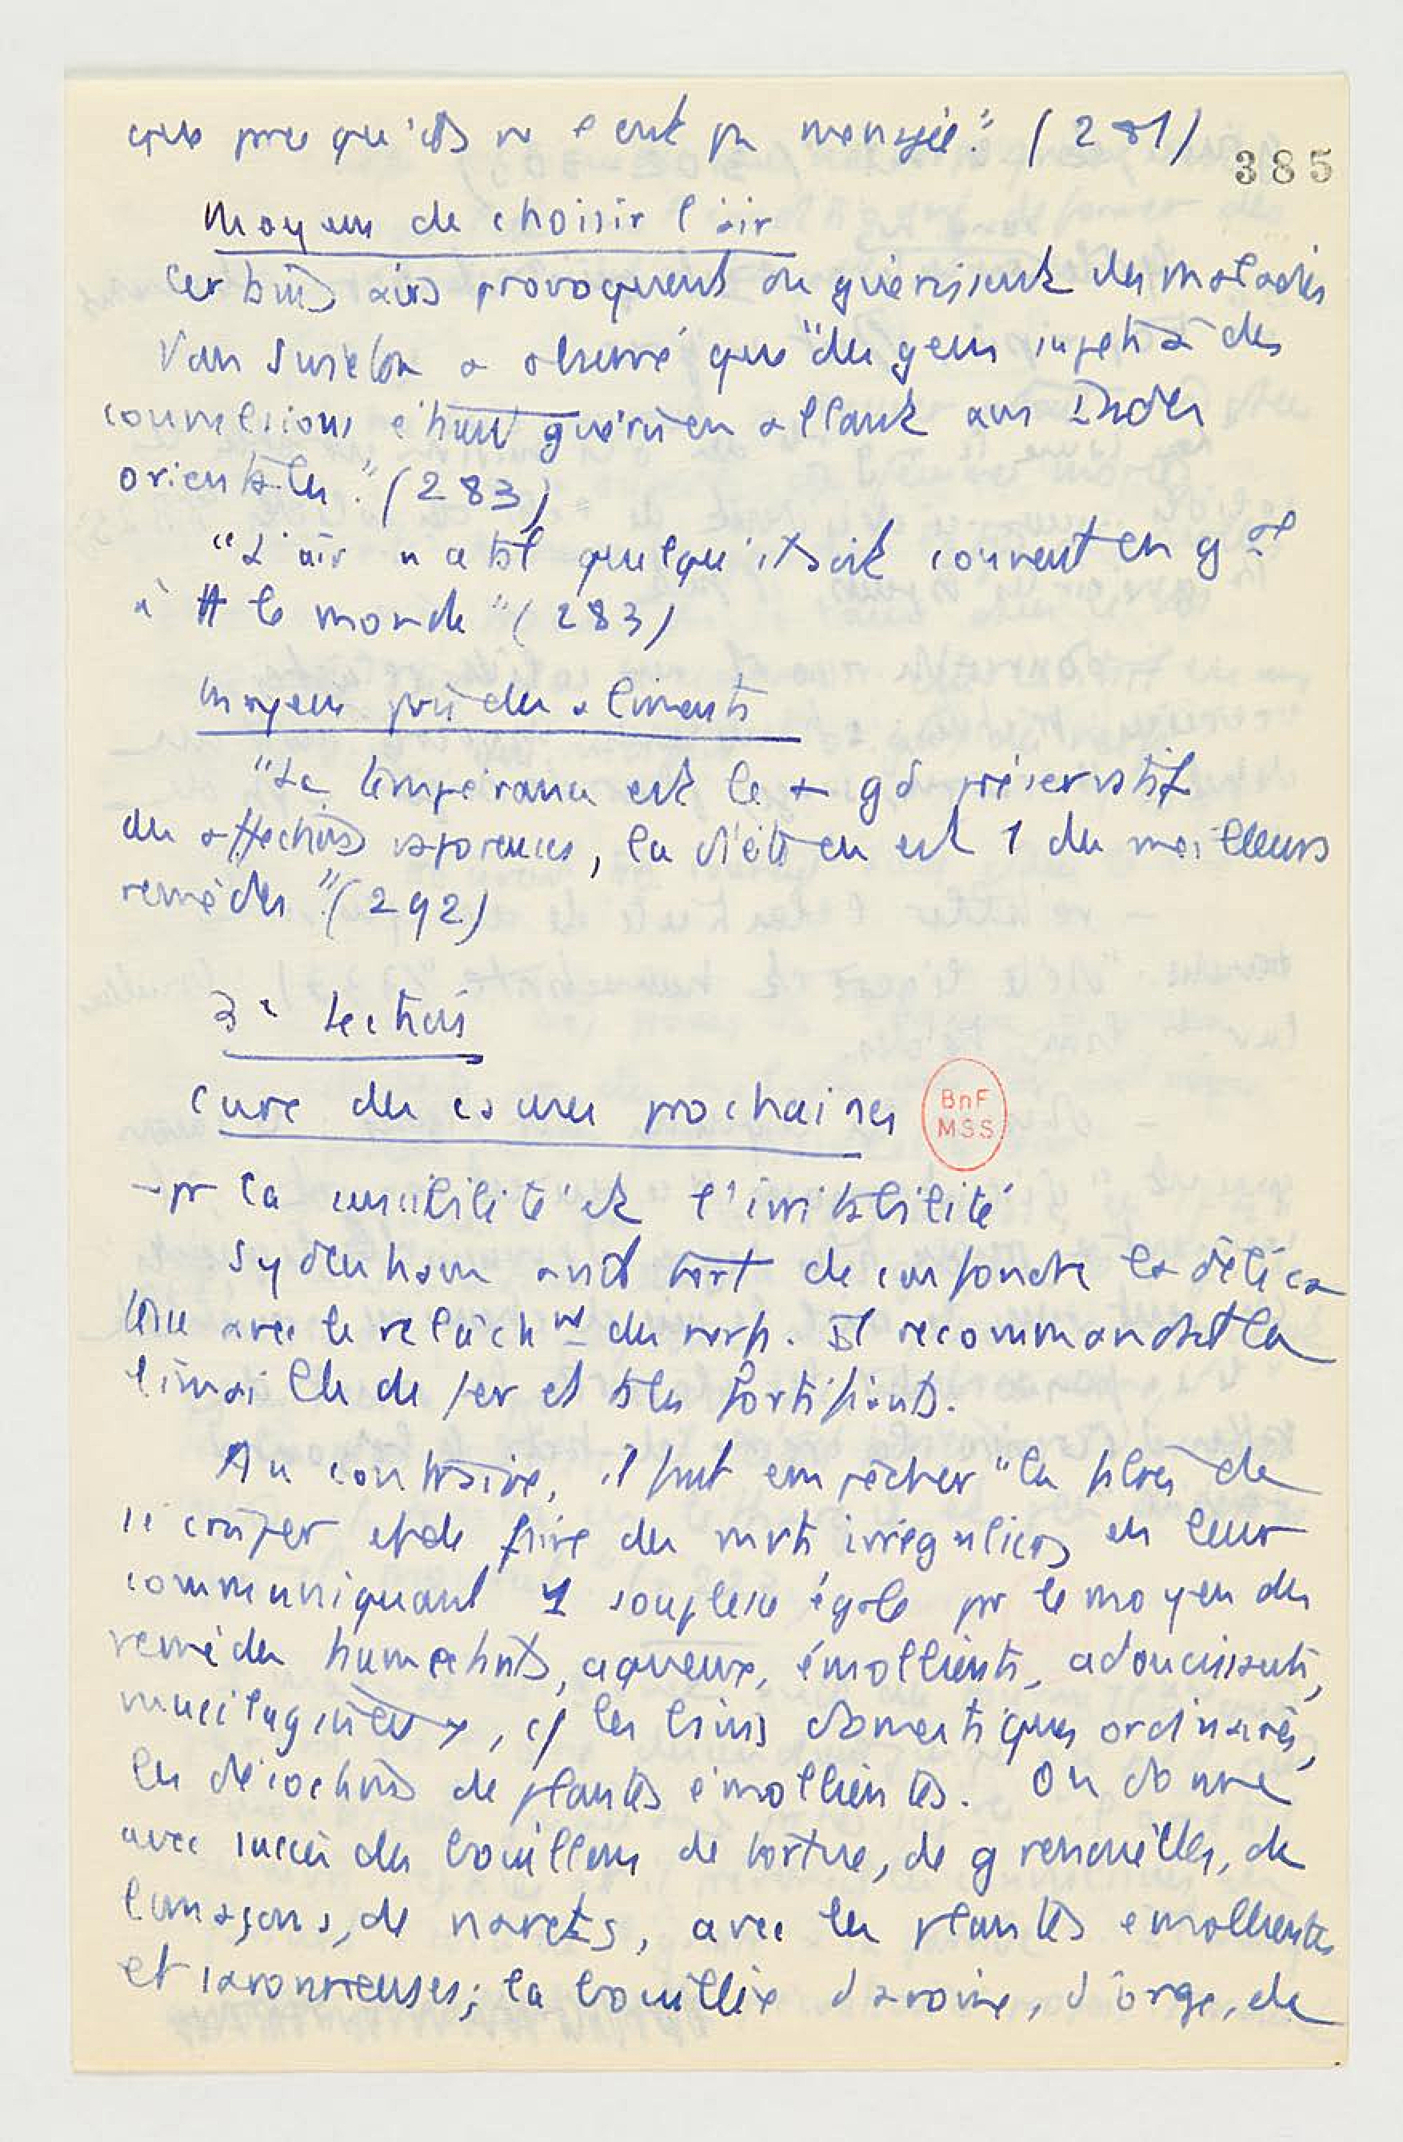 que parce qu'ils ne l'ont pas menagée." (281)
385
Moyens de choisir l'air
Certains airs provoquent ou guérissent des maladies
Van Swieten a observé que "des gens sujets à des
convulsions étaient guéris en allant aux Indes
orientales." (283)
"L'air natal quelqu'il soit convient en gal
à tt le monde" (283)
moyens pris des aliments
"La tempérance est le + gd préservatif
des affections vaporeuses, la diète en est 1 des meilleurs
remèdes" (292)
3e section
Cure des causes prochaines
BnF
MSS
- pr la sensibilité et l'irritabilité
Sydenham avait tort de confondre la délica
tesse avec le relâchmt des nerfs. Il recommandait la
limaille de fer et tts les fortifiants.
Au contraire, il faut empêcher "les fibres de
se crisper et de faire des mvts irréguliers en leur
communiquant 1 souplesse égale par le moyen des
remèdes humectants, aqueux, émollients, adoucissants,
mucilagineux, cf les bains domestiques ordinaires,
les décoctions de plantes émollientes. On donne
avec succès des bouillons de tortue, de grenouilles, de
limaçons, de navets, avec les plantes émollientes
et savonneuses; la bouillie d'avoine, d'orge, de